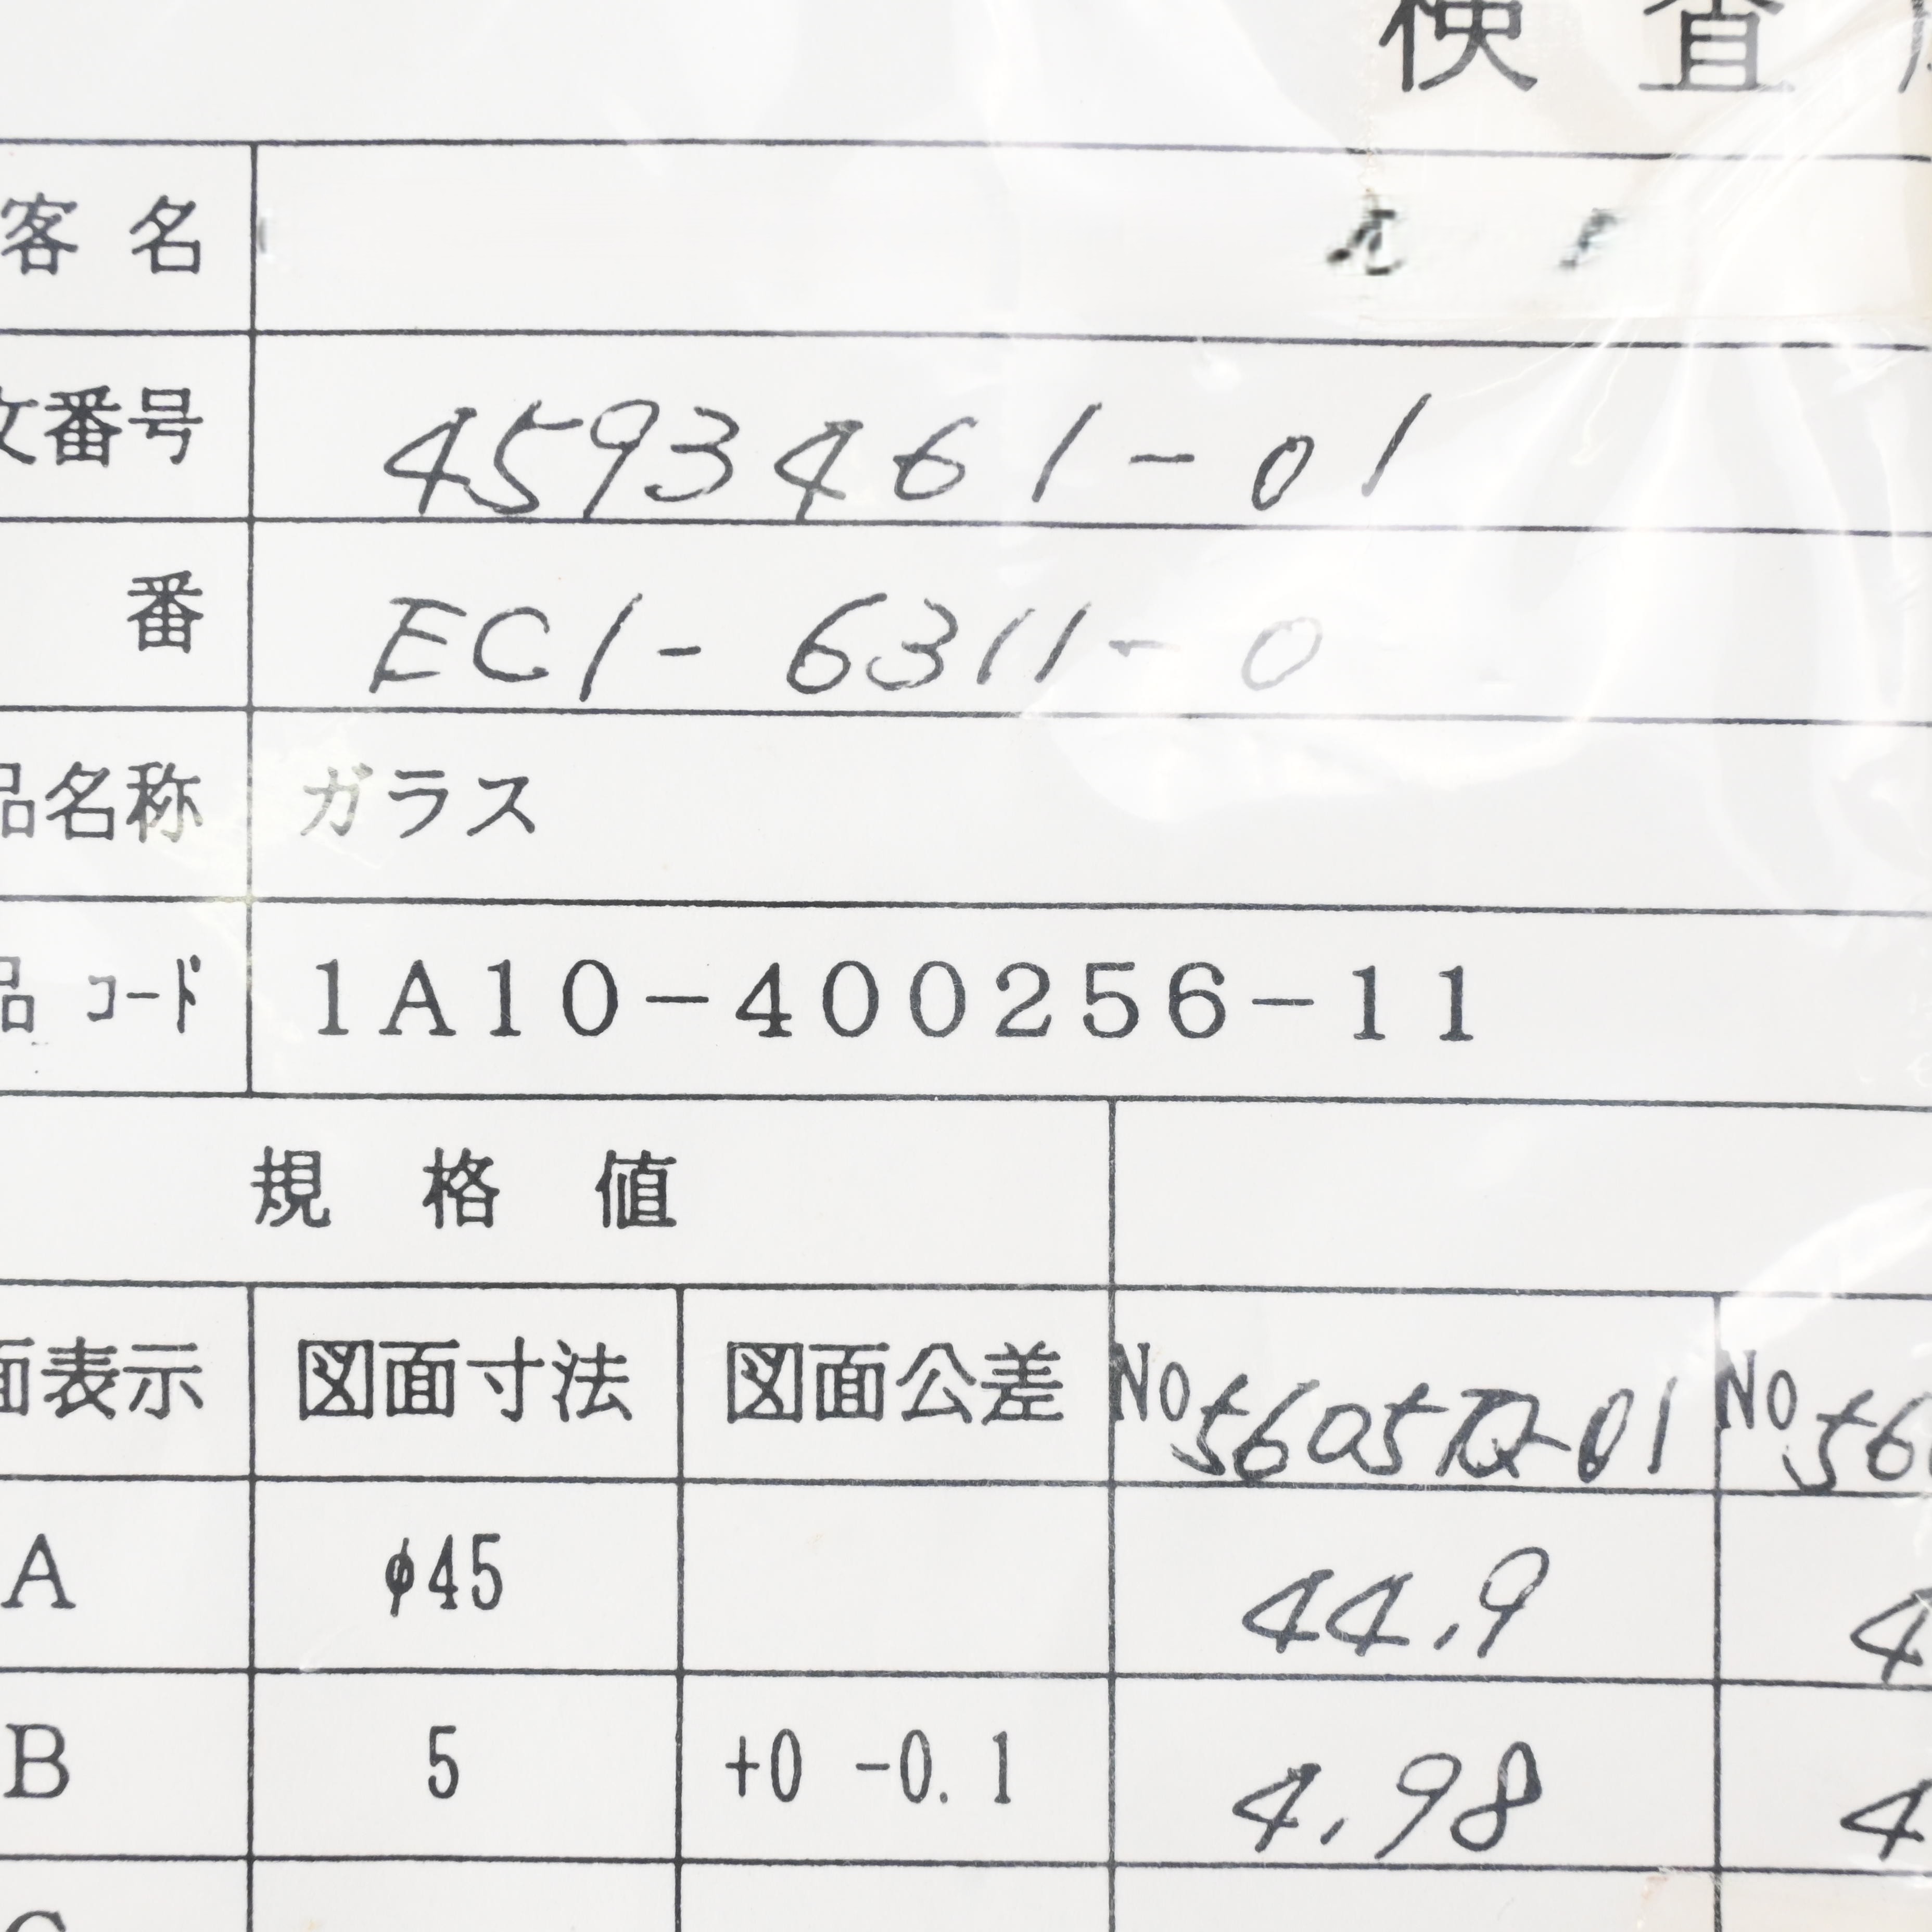 検 査
客 名
文番号 4593461-01
番 EC1-6311-0
品名称 ガラス
品 コード 1A10-400256-11
規 格 値
面表示 図面寸法 図面公差 No No
A φ45 44.9 4
B 5 +0 -0.1 4.98 4